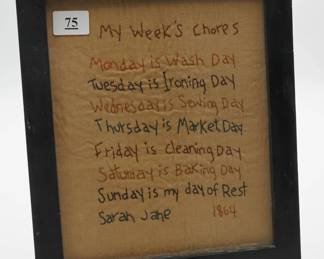 75
My Week's Chores
Monday is Wash Day
Tuesday is Ironing Day
Wednesday is Sewing Day
Thursday is Market Day
Friday is Cleaning Day
Saturday is Baking Day
Sunday is my day of Rest
Sarah Jane 1864